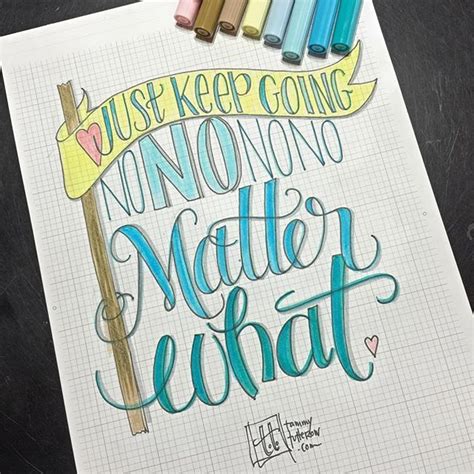 JUST KEEP GOING
NO NO NO NO
Matter
what.
tammy
tutterow
.com